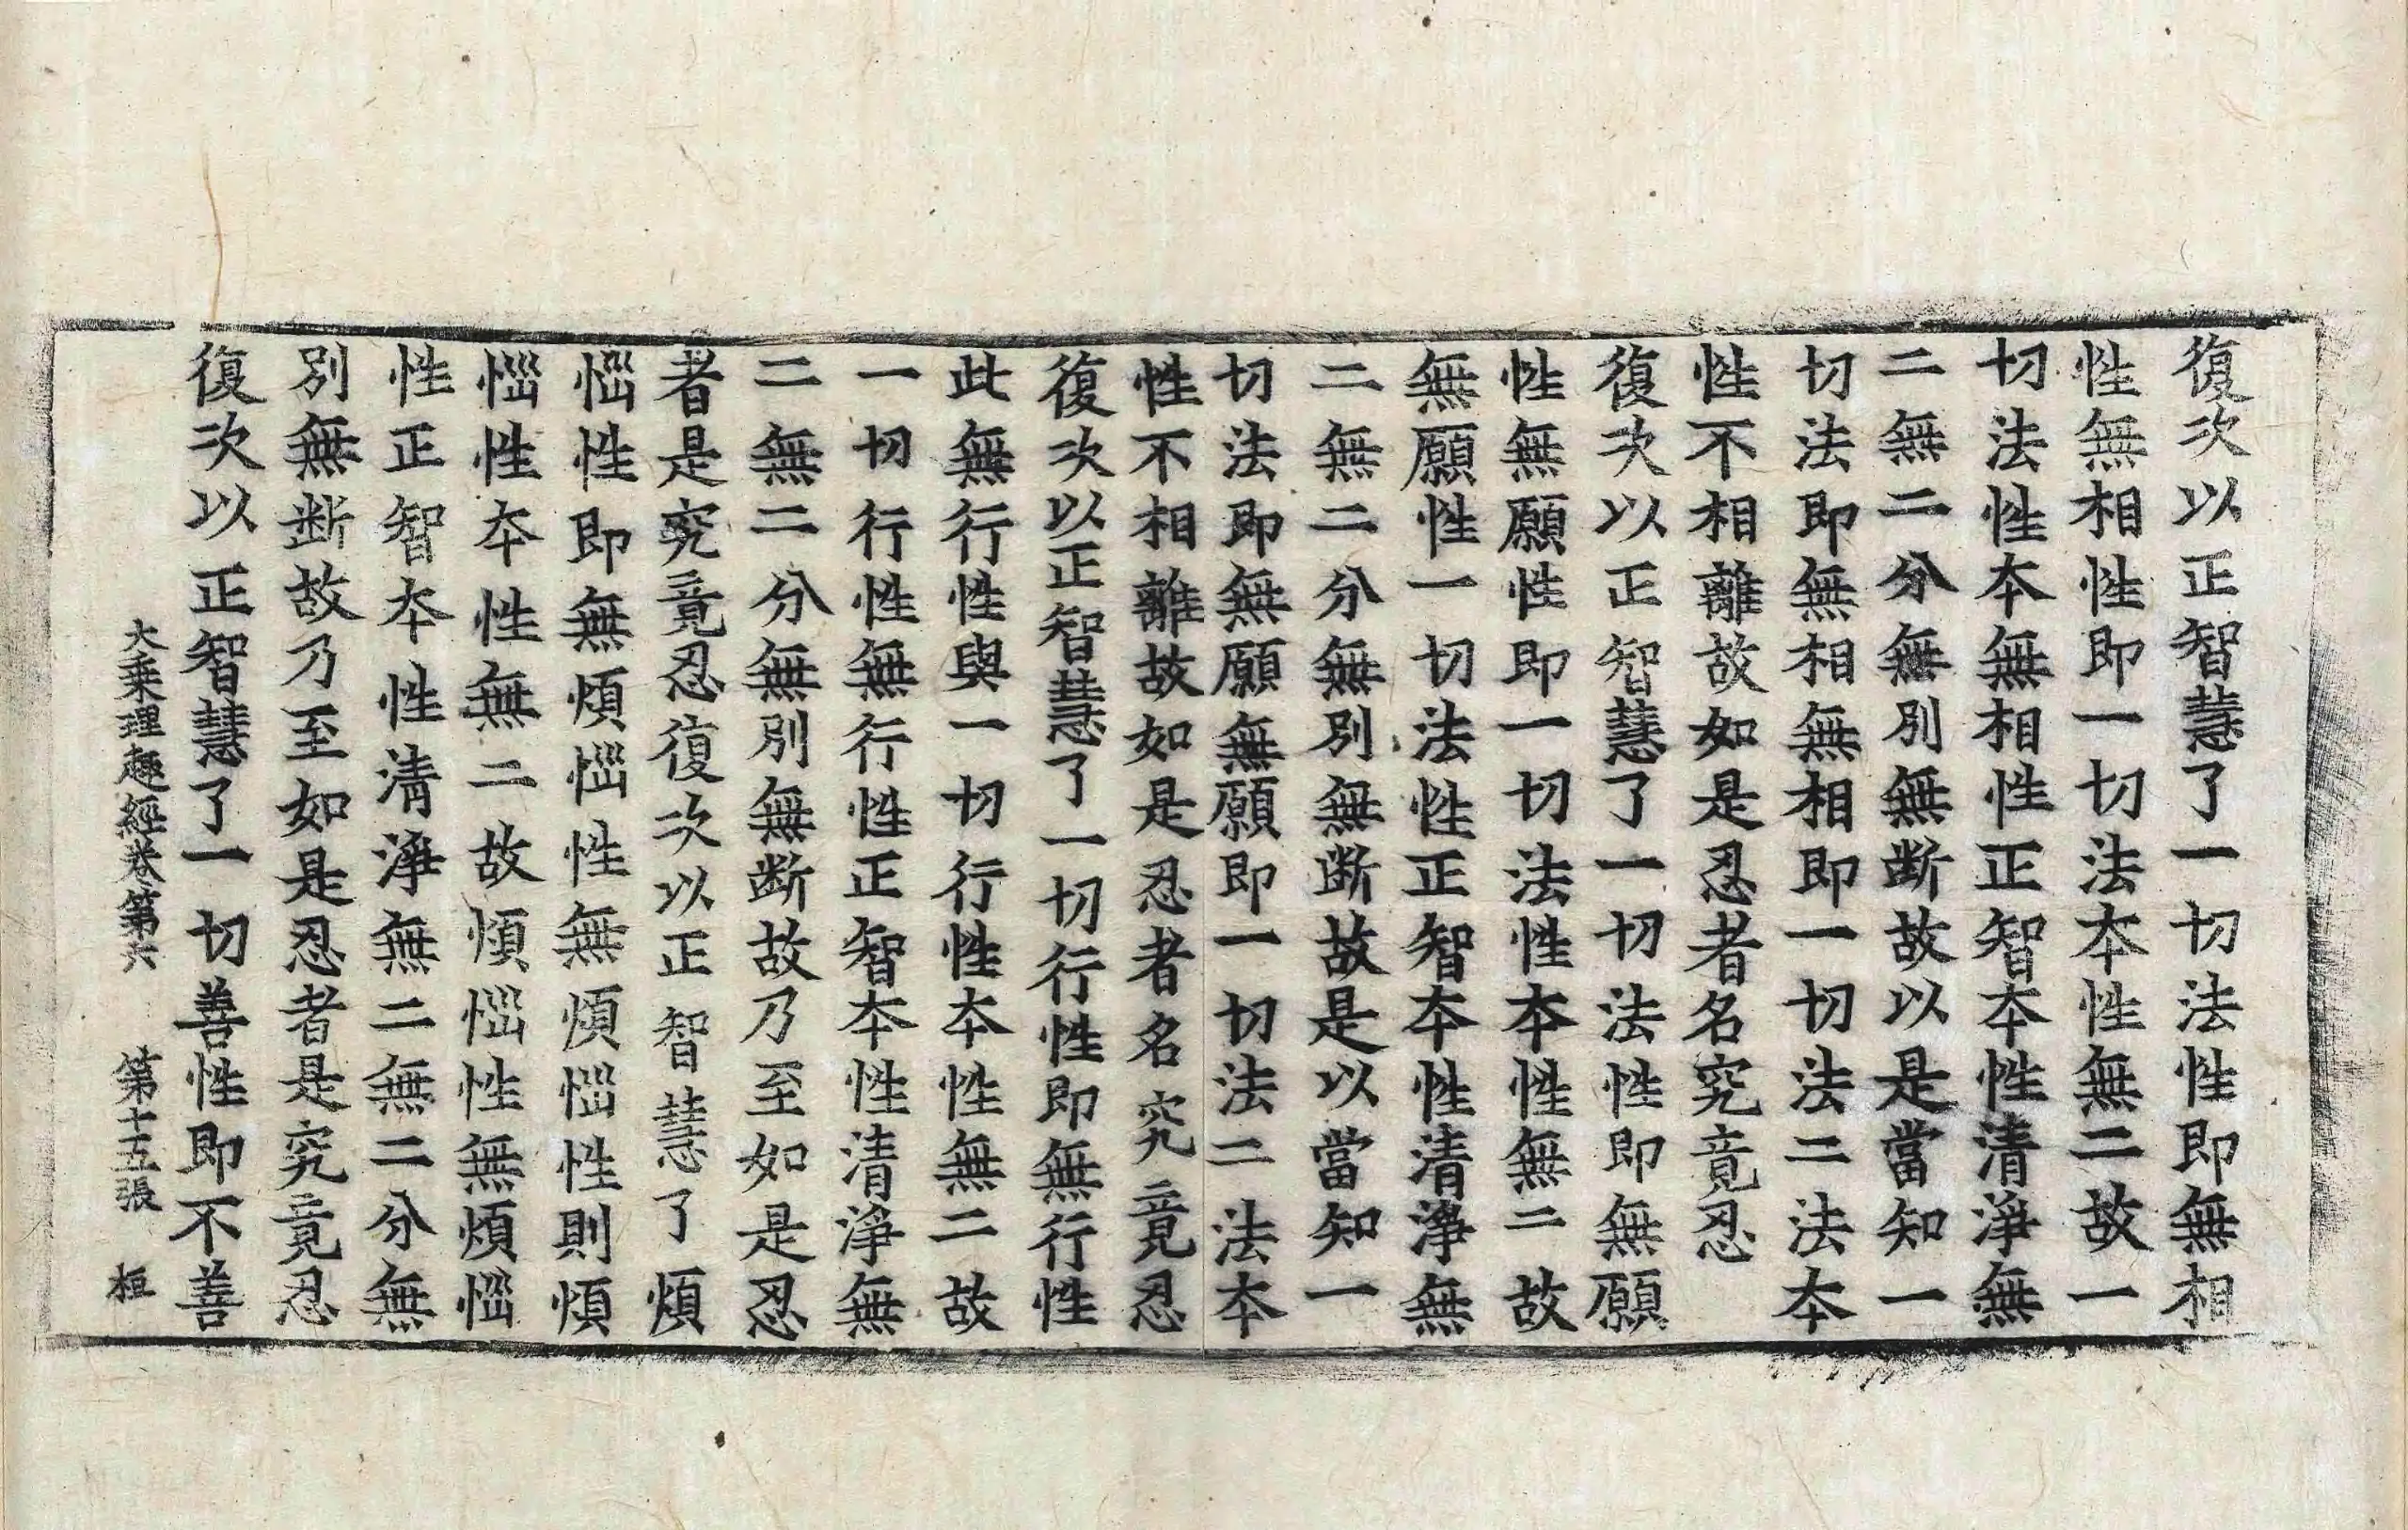 復次以正智慧了一切法性即無相
性無相性即一切法夲性無二故一
切法性夲無相性正智夲性清淨無
二無二分無別無斷故以是當知一
切法即無相無相即一切法二法夲
性不相離故如是忍者名究竟忍
復次以正智慧了一切法性即無願
性無願性即一切法性夲性無二故
無願性一切法性正智夲性清淨無
二無二分無別無斷故是以當知一
切法即無願無願即一切法二法夲
性不相離故如是忍者名究竟忍
復次以正智慧了一切行性即無行性
此無行性與一切行性夲性無二故
一切行性無行性正智夲性清淨無
二無二分無別無斷故乃至如是忍
者是究竟忍復次以正智慧了煩
惱性即無煩惱性無煩惱性則煩
惱性夲性無二故煩惱性無煩惱
性正智夲性清淨無二無二分無
別無斷故乃至如是忍者是究竟忍
復次以正智慧了一切善性即不善
大乗理趣經卷第六　第十五張　桓